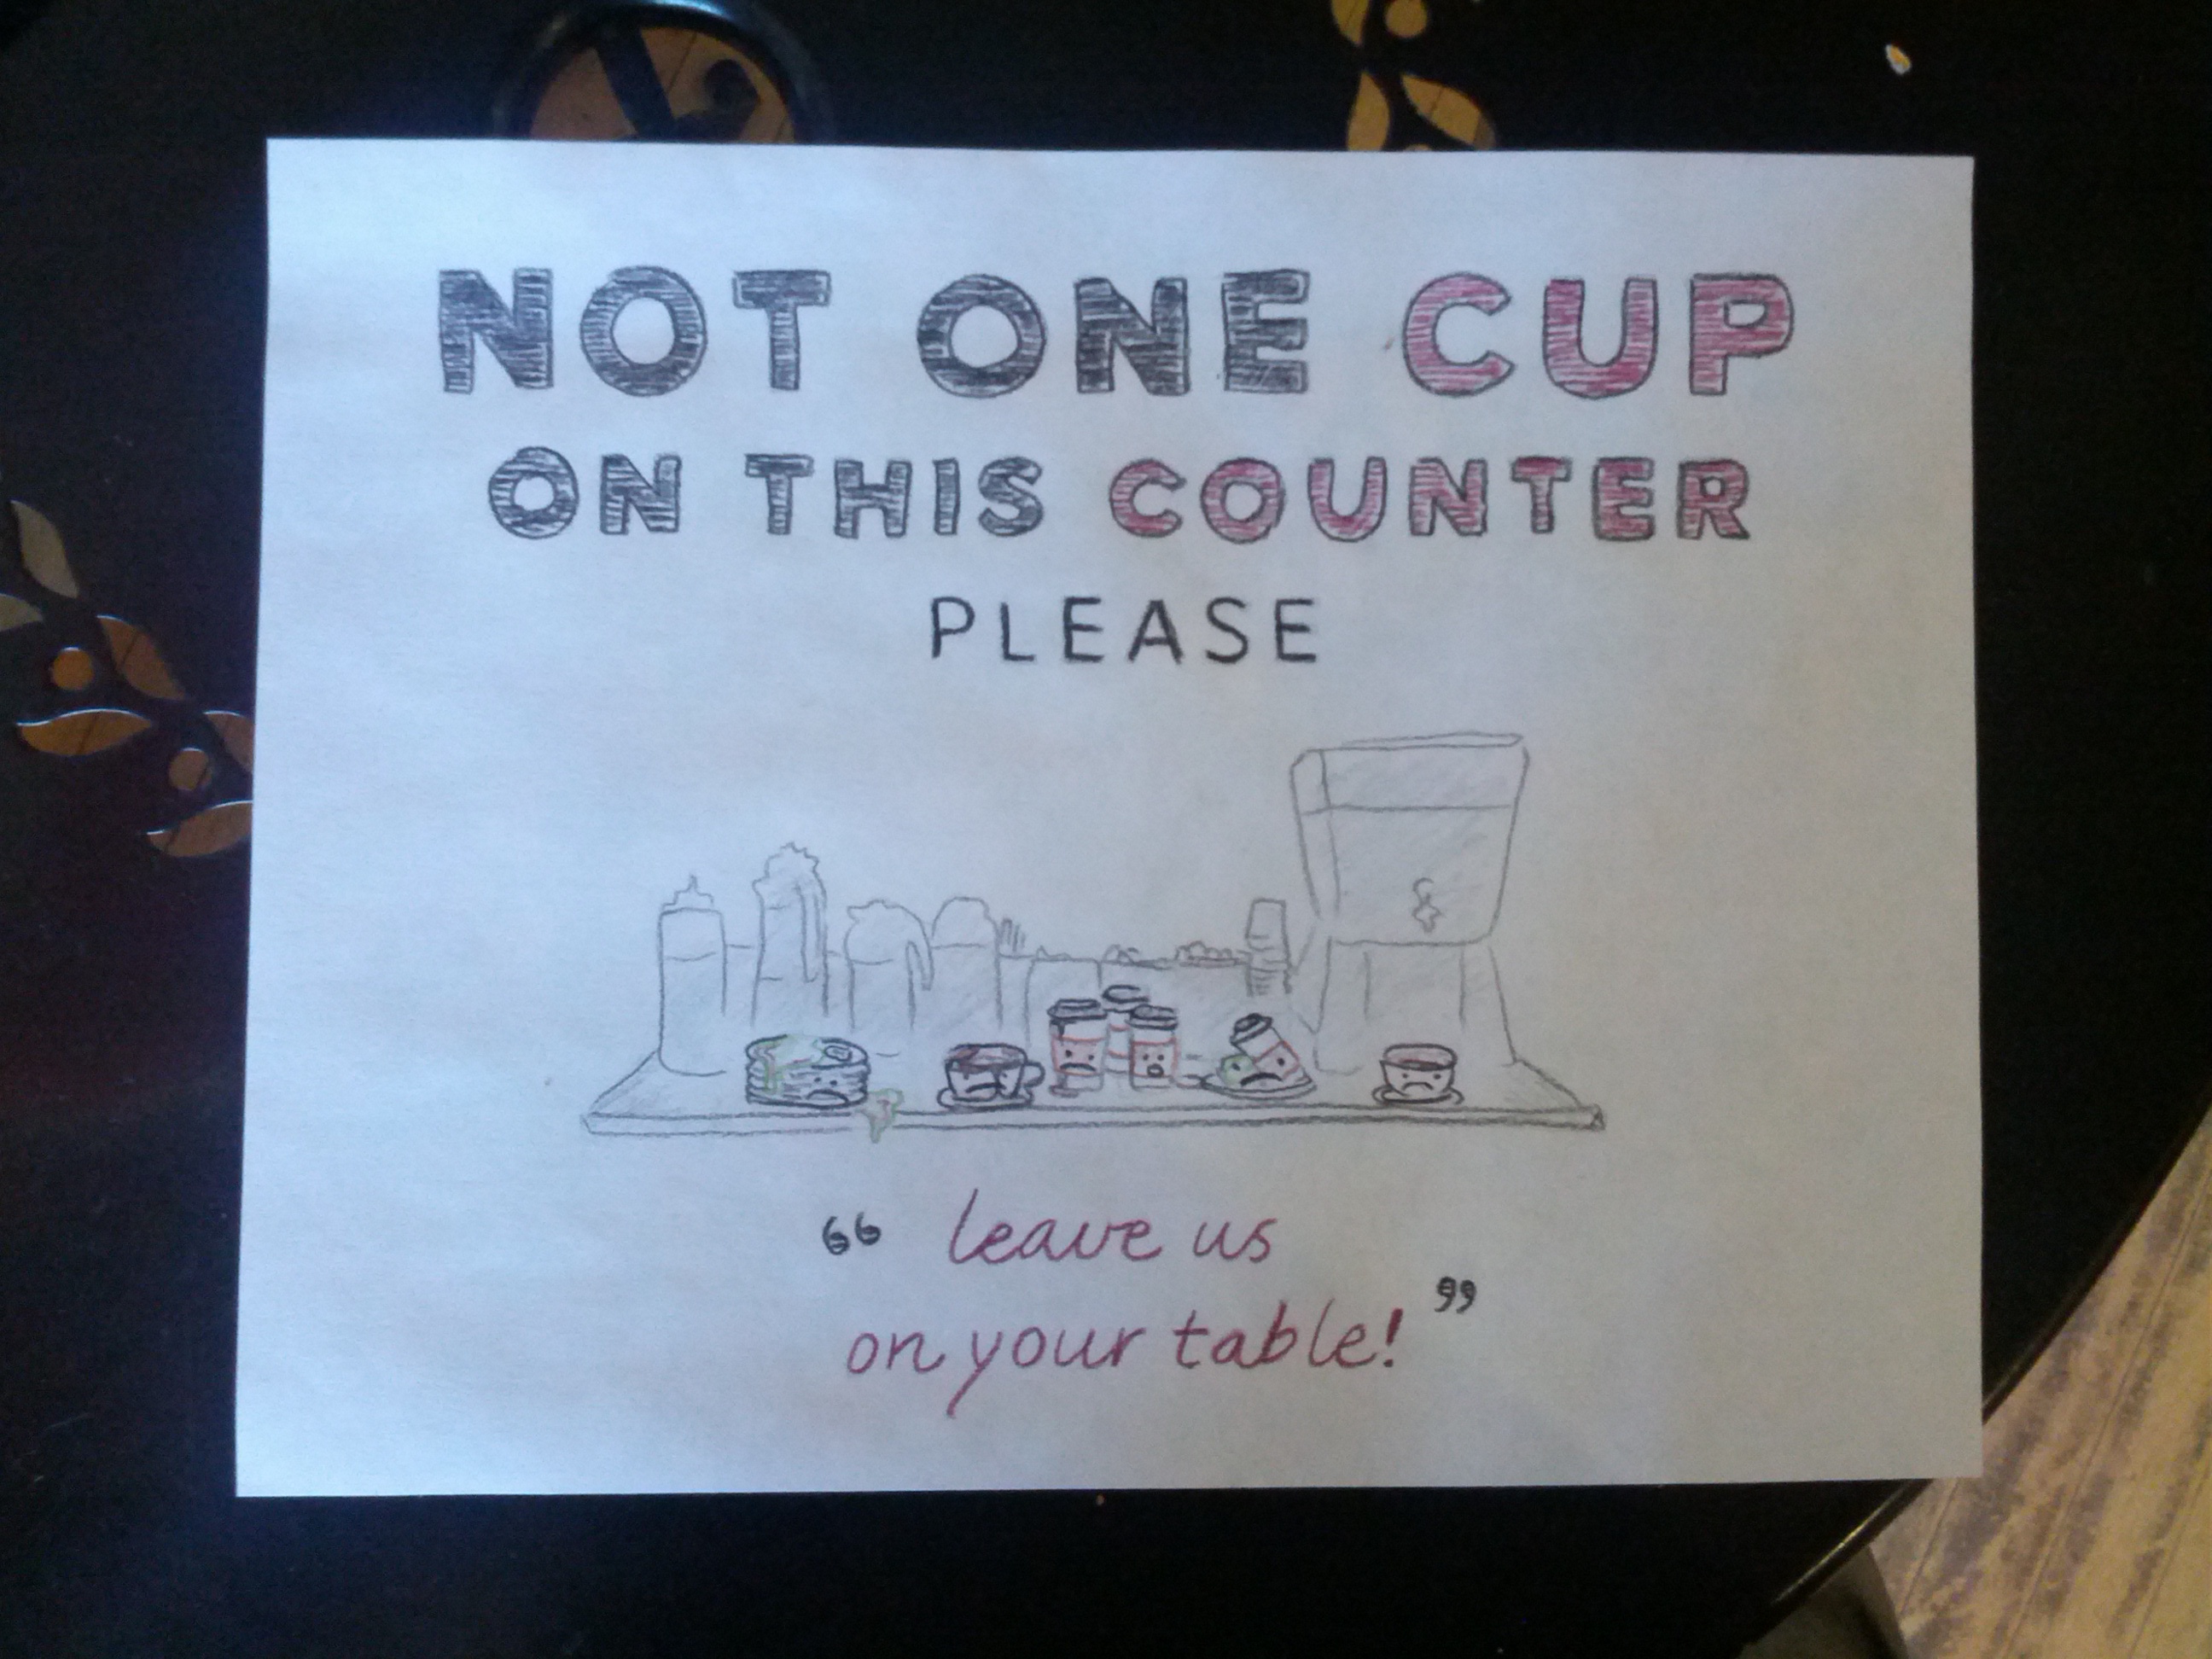 NOT ONE CUP
ON THIS COUNTER
PLEASE
“ leave us
on your table! ”